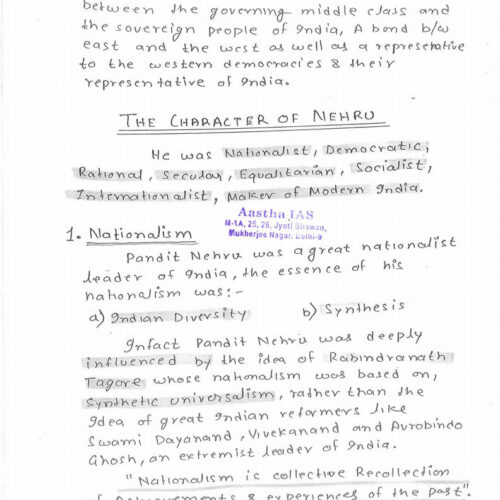 between the governing middle class and
the sovereign people of India, A bond b/w
east and the west as well as a representative
to the western democracies & their
representative of India.
THE CHARACTER OF NEHRU
He was Nationalist, Democratic,
Rational, Secular, Equalitarian, Socialist,
Internationalist, Maker of Modern India.
Aastha IAS
M-1A, 25, 26, Jyoti Bhawan,
Mukherjee Nagar, Delhi-9
1. Nationalism
Pandit Nehru was a great nationalist
leader of India, the essence of his
nationalism was:-
a) Indian Diversity b) Synthesis
Infact Pandit Nehru was deeply
influenced by the idea of Rabindranath
Tagore whose nationalism was based on,
Synthetic universalism, rather than the
Idea of great Indian reformers like
Swami Dayanand, Vivekanand and Aurobindo
Ghosh, an extremist leader of India.
"Nationalism is collective Recollection
of Achievements & experiences of the past".